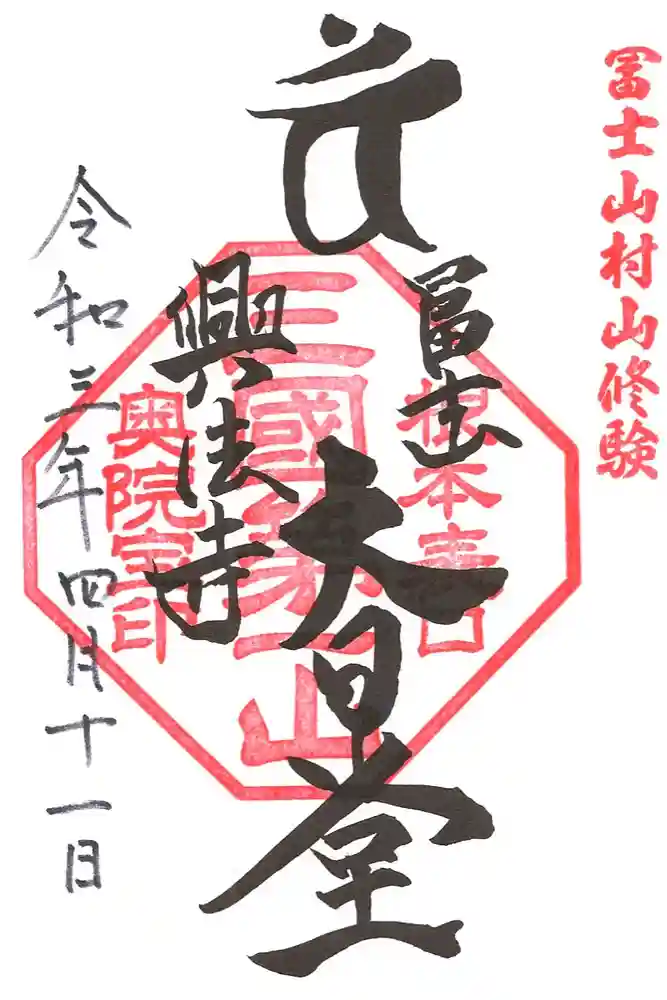 冨士山村山修験
冨士
大日堂
興法寺
令和三年四月十一日
根本表口
三國第一山
奥院宝印